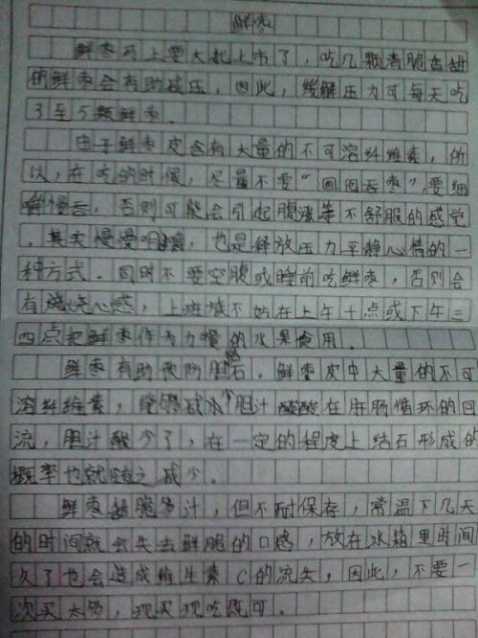 鲜枣
鲜枣马上要大批上市了，吃几颗香脆香甜
的鲜枣会有助减压，因此，缓解压力可每天吃
3至5颗鲜枣。
由于鲜枣皮含有大量的不可溶纤维素，所
以，在吃的时候，尽量不要“囫囵吞枣”，要细
嚼慢舌，否则可能会引起腹涨等不舒服的感觉
，其实慢慢咀嚼，也是释放压力平静心情的一
种方式。同时不要空腹或睡前吃鲜枣，否则会
有烧心感，上班族不妨在上午十点或下午三
四点把鲜枣作为加餐的水果食用。
鲜枣有助预防胆结石，鲜枣皮中大量的不可
溶纤维素，能够减少胆汁酸在肝肠循环的回
流，胆汁酸少了，在一定的程度上结石形成的
概率也就随之减少。
鲜枣甜脆多汁，但不耐保存，常温下几天
的时间就会失去鲜脆的口感，放在冰箱里时间
久了也会造成维生素C的流失，因此，不要一
次买太多，现买现吃既可。